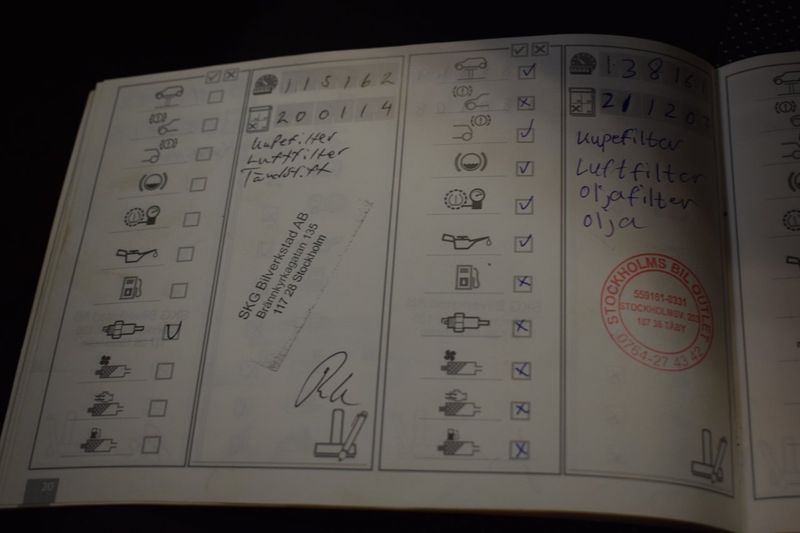 115162
200114
Kupefilter
Luftfilter
Tändstift
SKG Bilverkstad AB
Brännkyrkagatan 135
117 28 Stockholm
20
13816
21120
Kupefilter
Luftfilter
Oljafilter
olja
STOCKHOLMS BIL OUTLET
559181-0331
STOCKHOLMSV. 203
187 36 TÄBY
0764-27 43 42